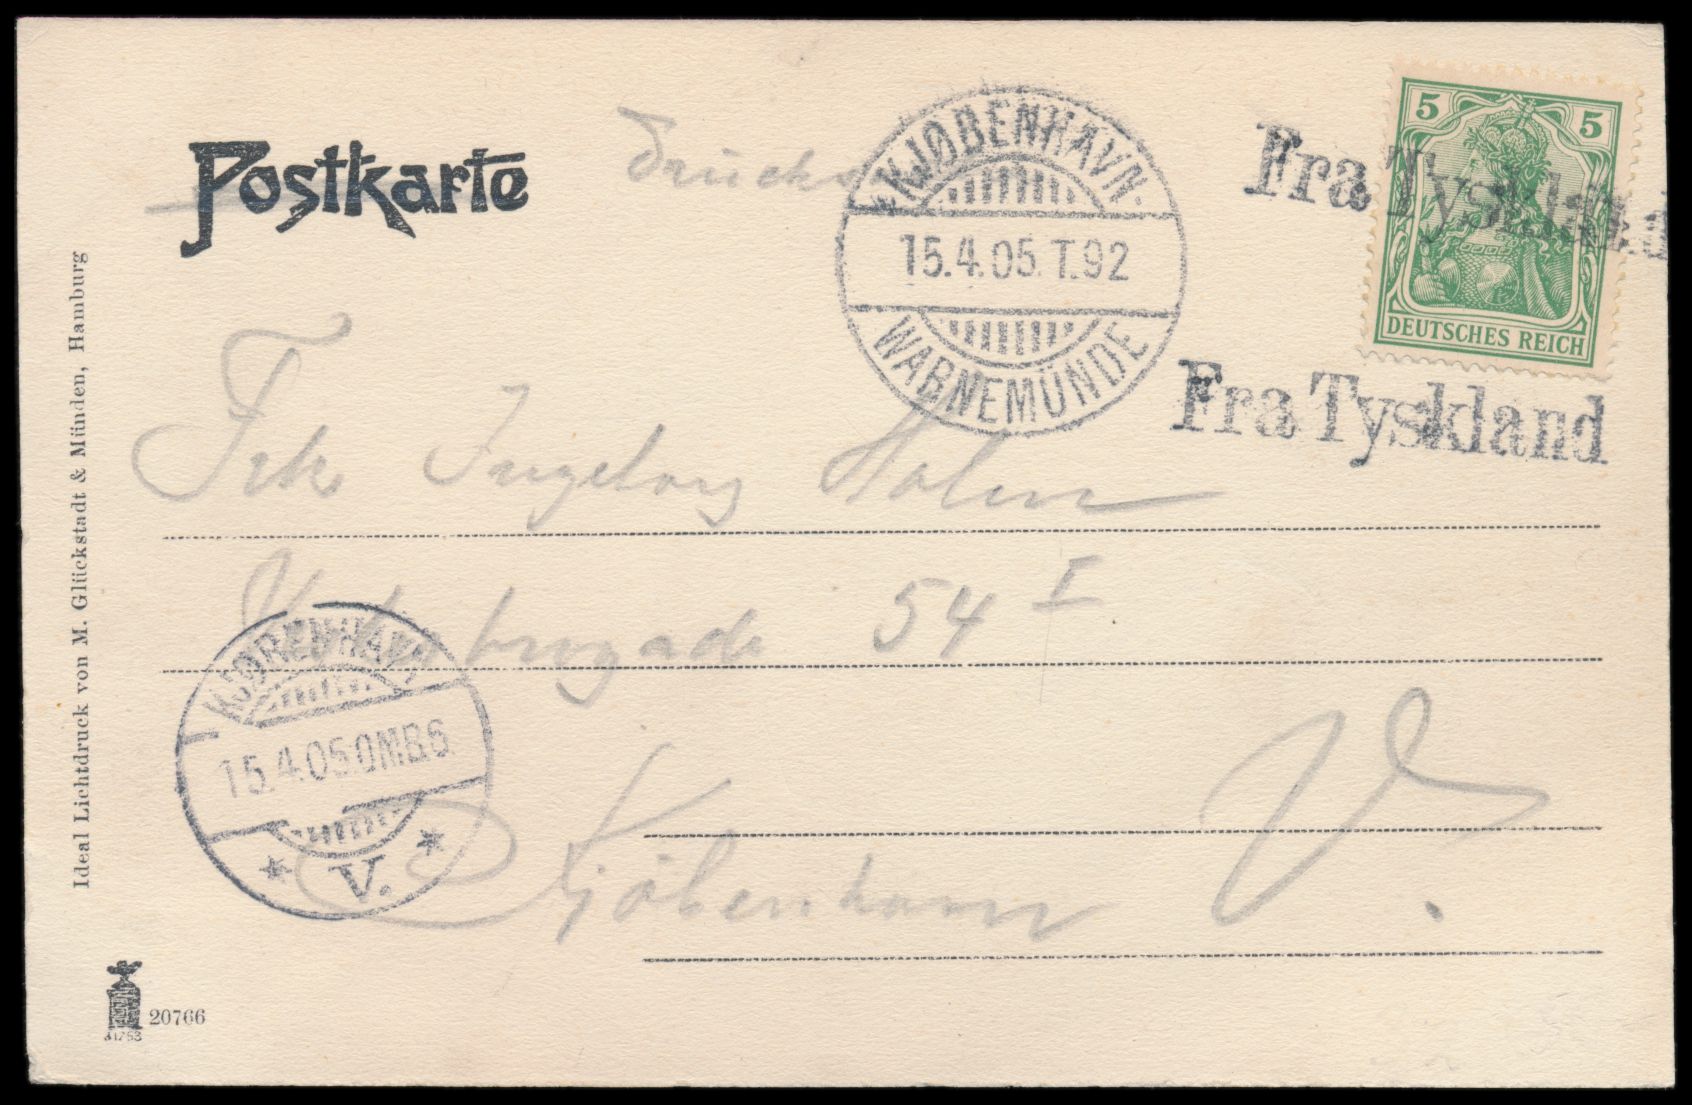 Postkarte
Drucks
KJØBENHAVN.
15.4.05. T.92
WARNEMÜNDE
5 5
DEUTSCHES REICH
Fra Tyskland
Fra Tyskland
Frk Ingeborg Holm
54 I
Kjöbenhavn V.
KJØBENHAVN
15.4.05.OMB.6
V.
Ideal Lichtdruck von M. Glückstadt & Münden, Hamburg
20766